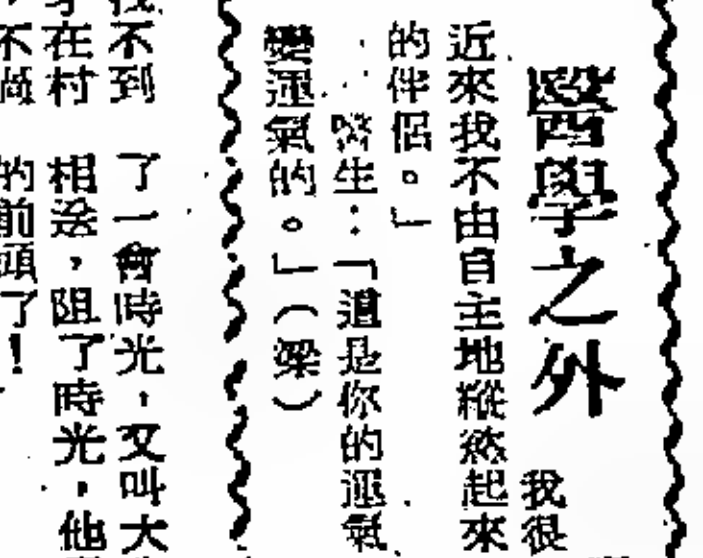 醫學之外
我很
近來我不由自主地縱慾起來
的伴侶。」
醫生:「這是你的運氣
變運氣的。」(梁)
不到
才在村
了一會時光,又叫大
相送,阻了時光,他
的前頭了!